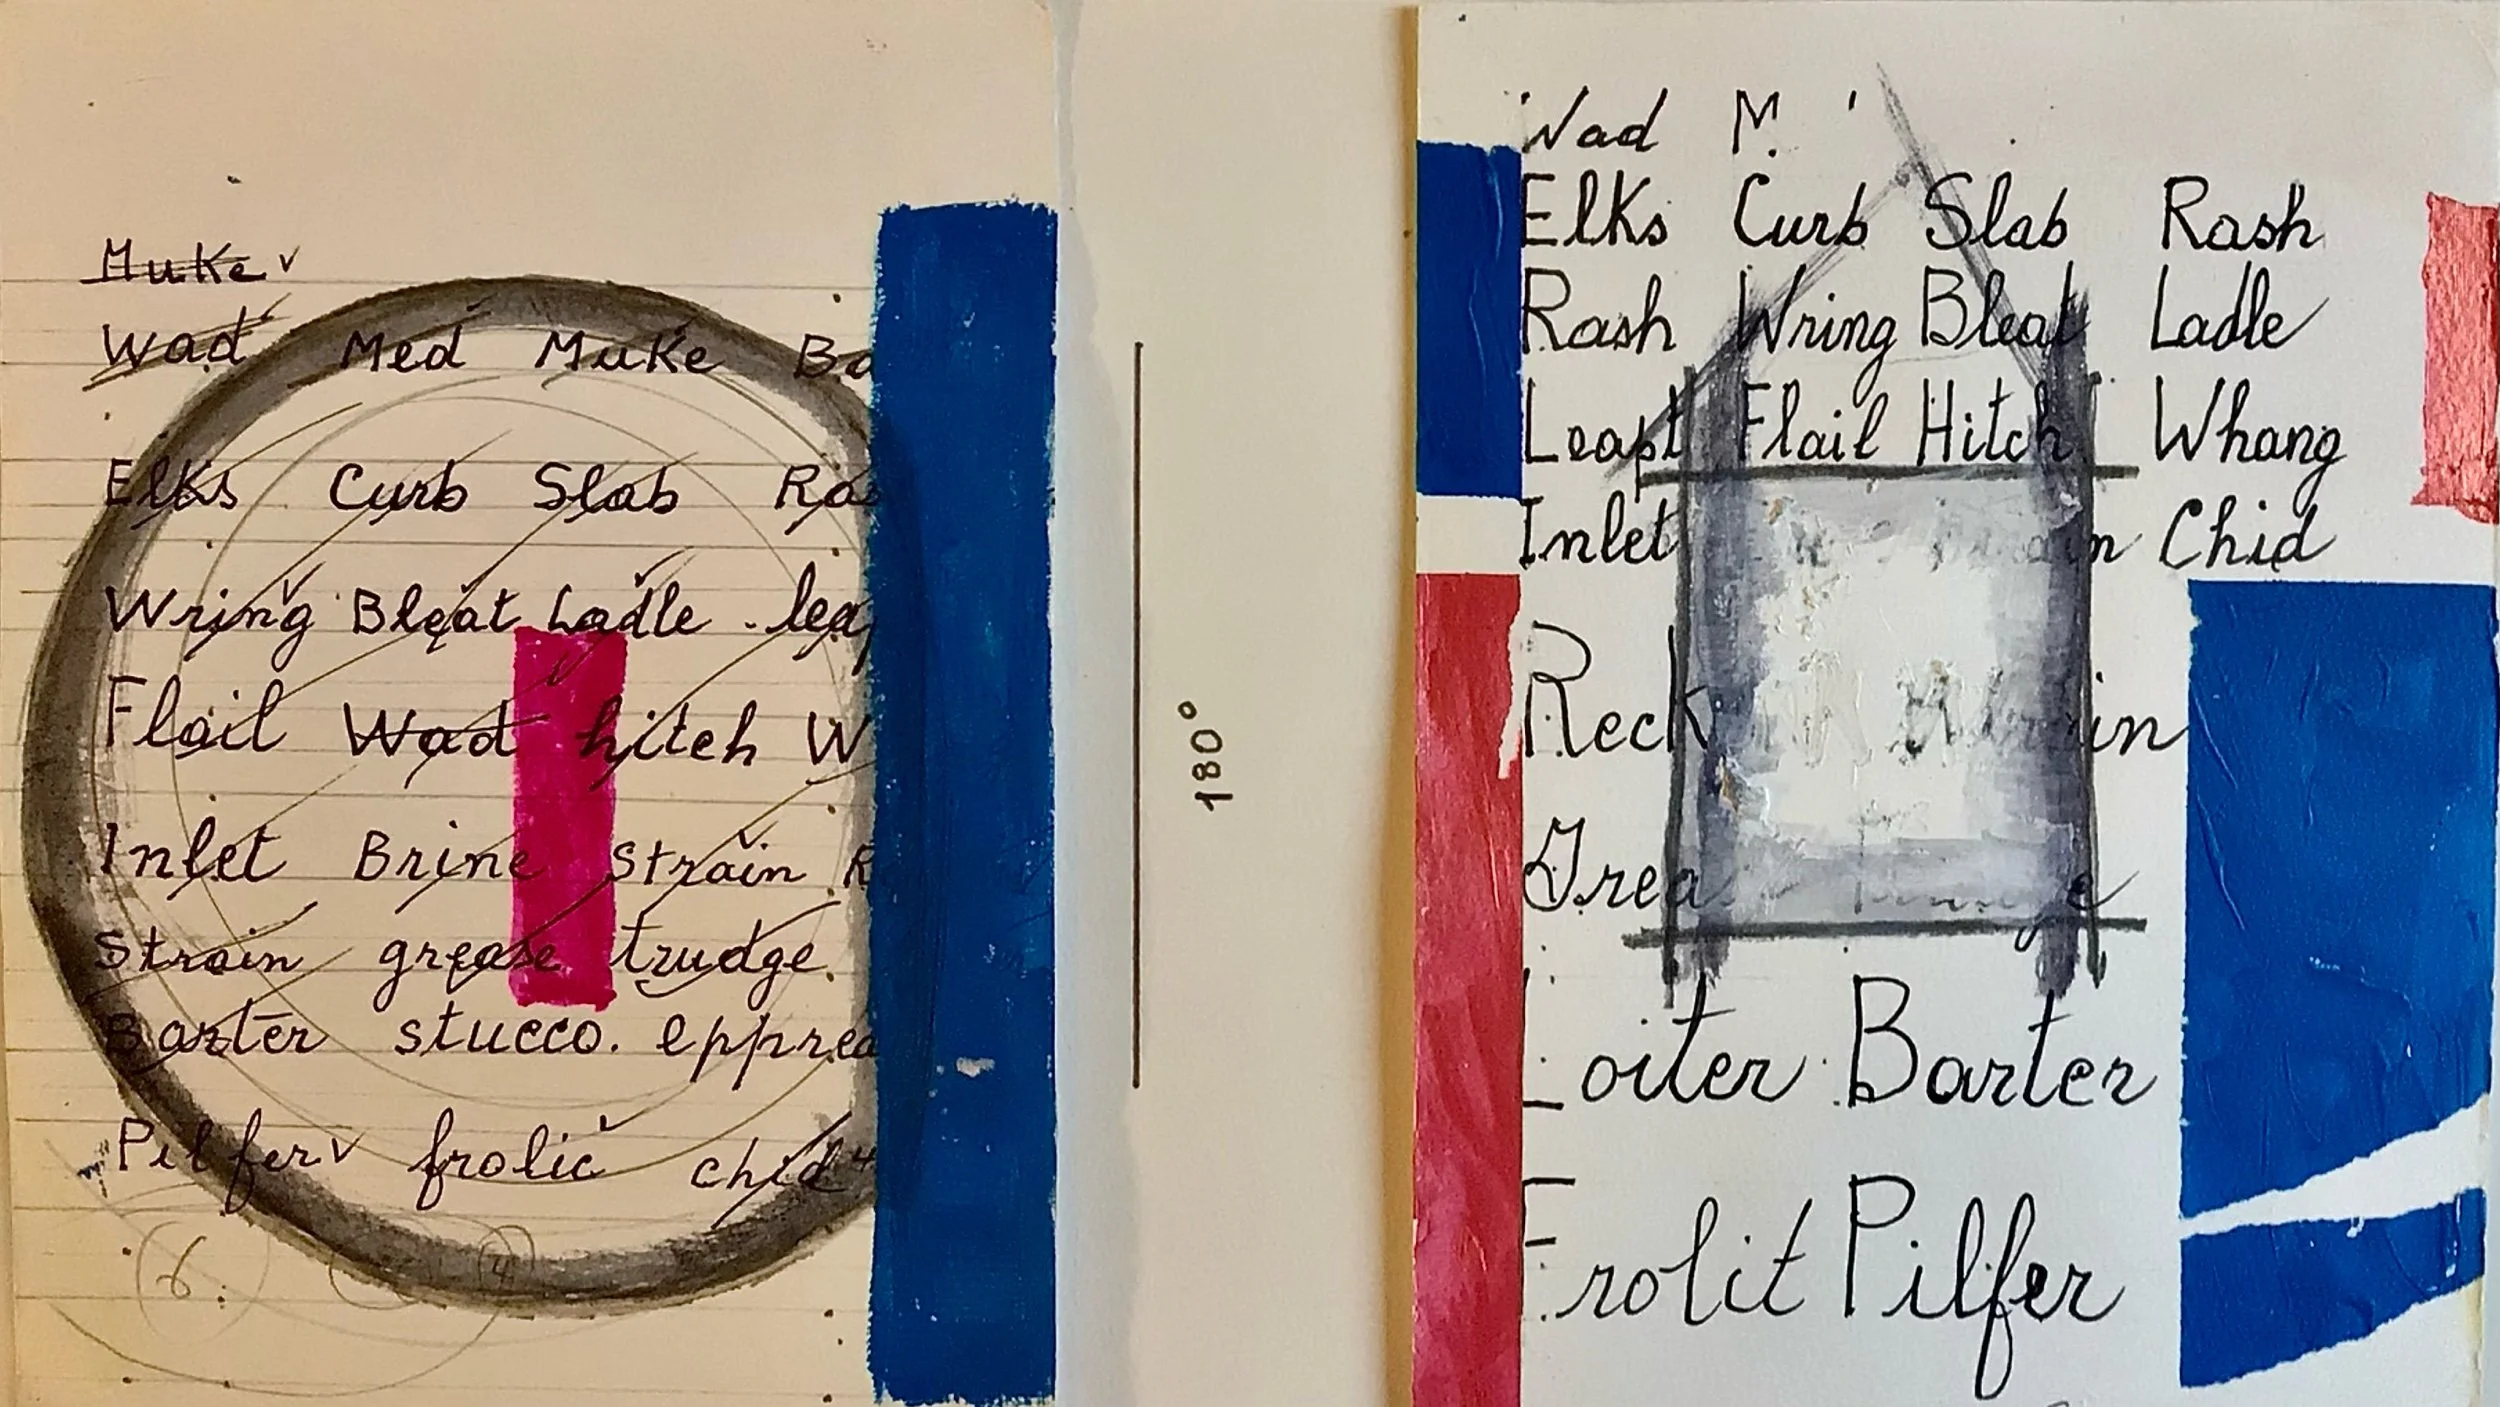 Muke
Wad Med Muke Ba
Elks Curb Slab Ras
Wring Bleat Ladle leap
Flail Wad hitch W
Inlet Brine Strain R
Strain grease trudge.
Barter stucco. epprea
Pilfer frolic chid 4
6. 4
180°
Wad M
Elks Curb Slab Rash
Rash Wring Bleat Ladle
Leapt Flail Hitch Whang
Inlet Chid
Reck in
Grea e
Loiter Barter
Frolit Pilfer